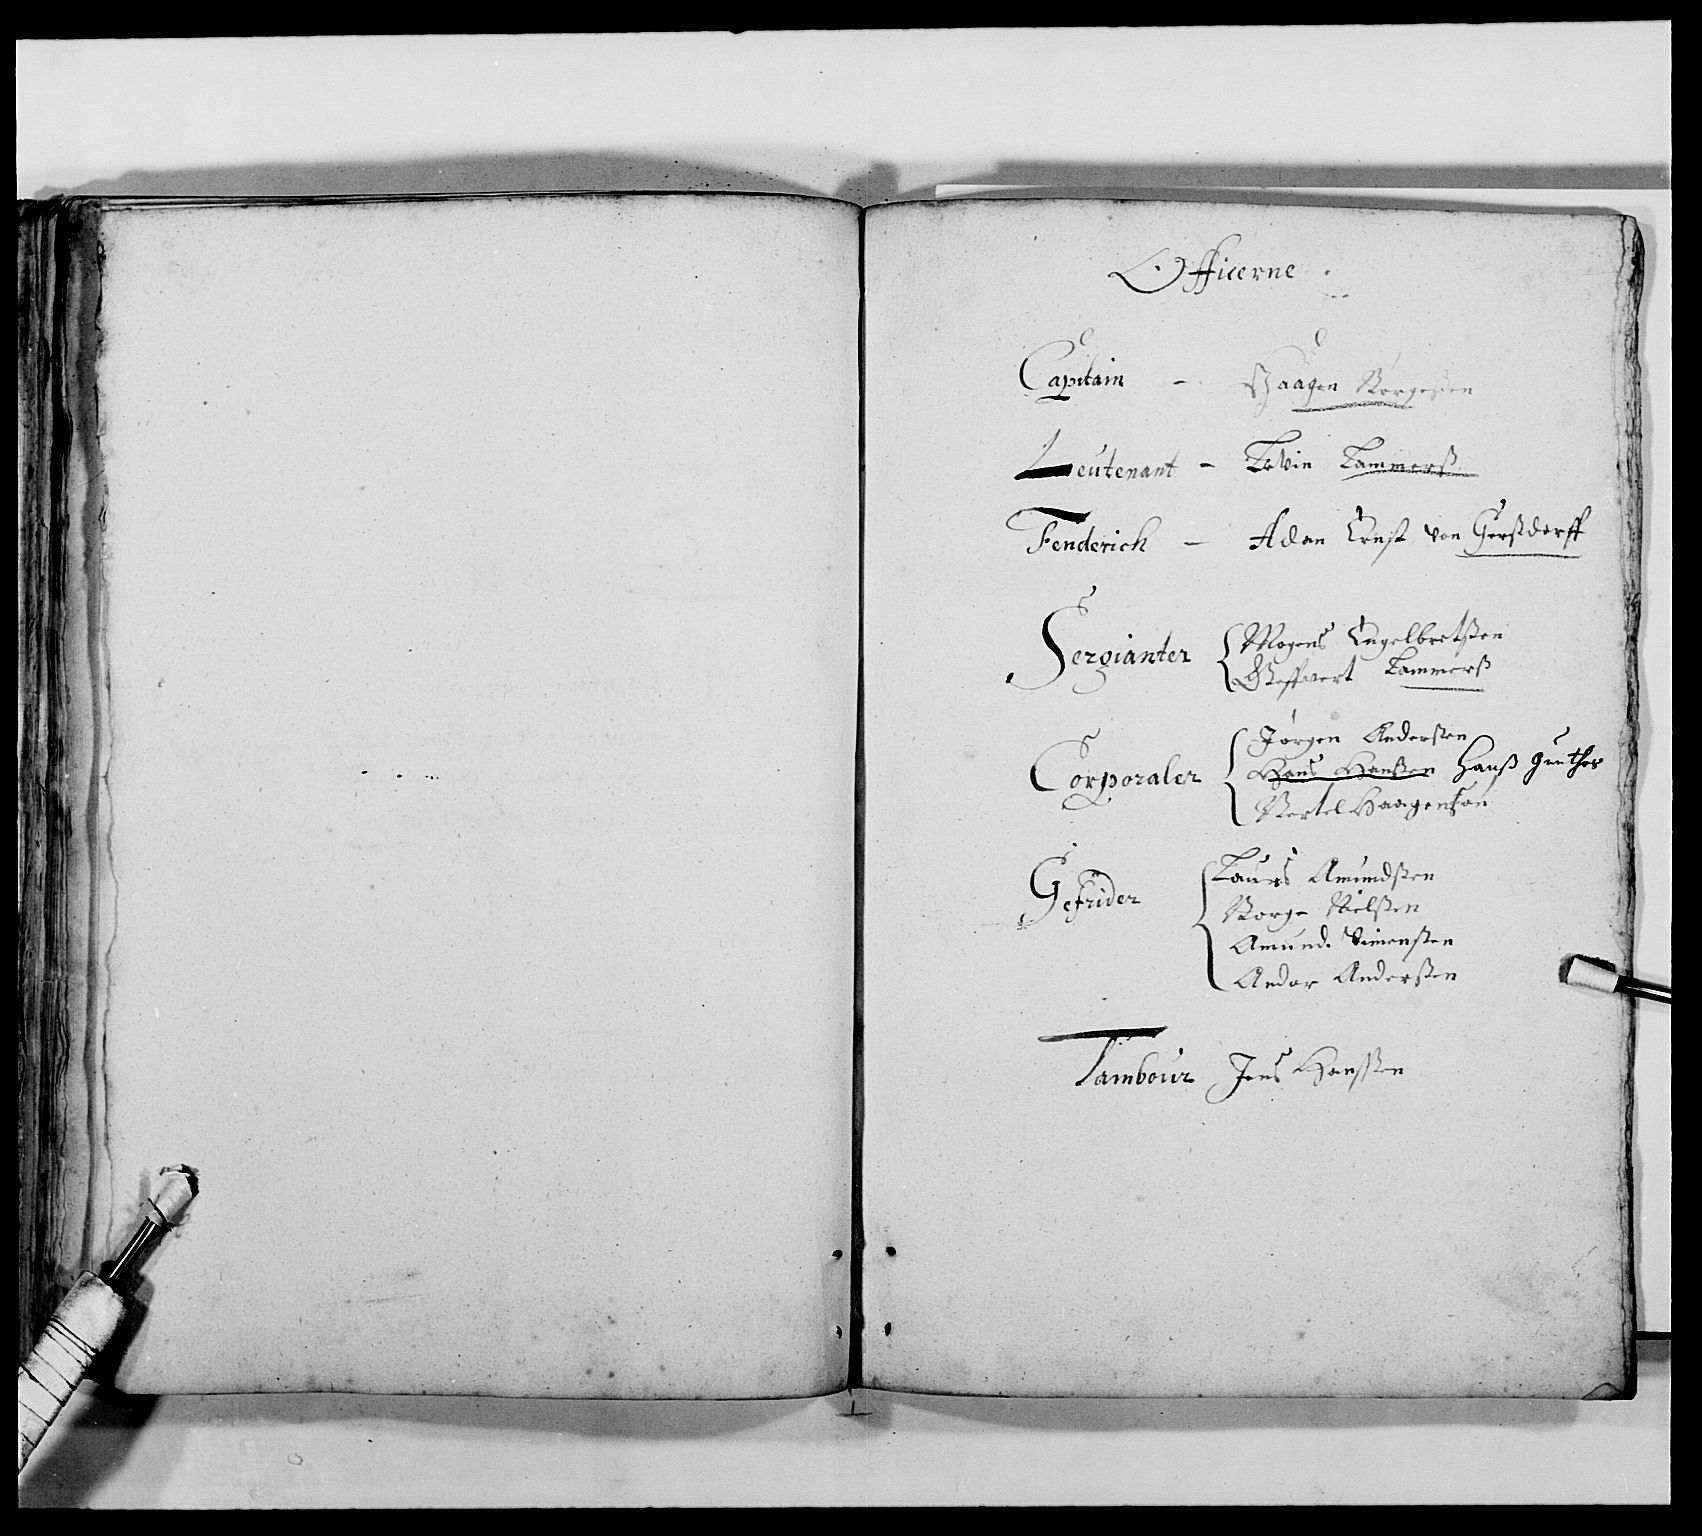 Officerne.
Capitain - Haagen Børgesen
Leutenant - Tevin Lammerß
Fenderich - Adam Ernst von Gerßdorff
Sergianter Mogens Engelbretßen
Lammerß
Corporaler Jørgen Anderßen
Hans Hanßen Hanß Gunther
Bertel Haagenßøn
Gefrider Laurs Amundßen
Børge Nielßen
Amund Simenßen
Andor Anderßen
Tambour Jens Hanßen